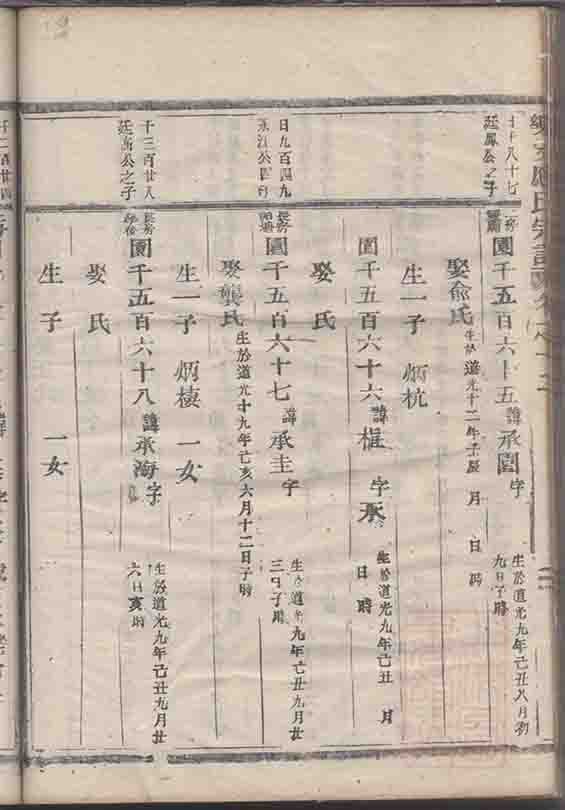 氏宗譜
廷鳳公之子
園千五百六十五諱承園字
生於道光九年己丑八月初
九日子時
娶俞氏生於道光十二年壬辰 月 日 時
生一子 炳杭
園千五百六十六諱框 字承
生於道光九年己丑 月
日 時
娶 氏
日九百四九
永江公四子
園千五百六十七諱承圭字
生於道光九年己丑九月廿
三日子時
娶龔氏生於道光十九年己亥六月十二日子時
生一子 炳棲 一女
十三百廿八
廷高公之子
園千五百六十八諱承海字
生於道光九年己丑九月廿
六日亥時
娶 氏
生 子 一女